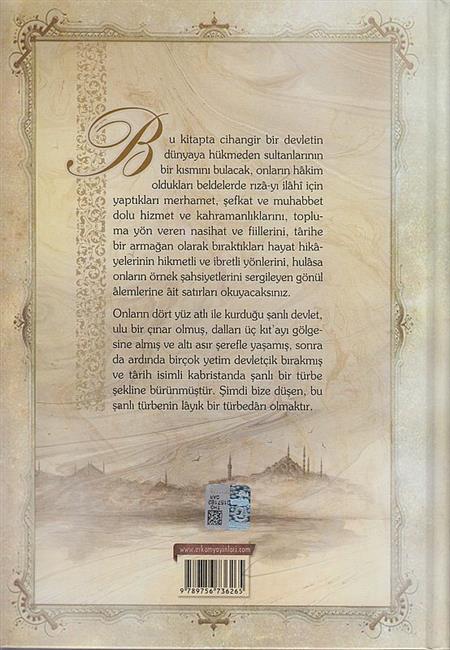 Bu kitapta cihangir bir devletin
dünyaya hükmeden sultanlarının
bir kısmını bulacak, onların hâkim
oldukları beldelerde rızâ-yı ilâhî için
yaptıkları merhamet, şefkat ve muhabbet
dolu hizmet ve kahramanlıklarını, toplu-
ma yön veren nasihat ve fiillerini, târihe
bir armağan olarak bıraktıkları hayat hikâ-
yelerinin hikmetli ve ibretli yönlerini, hulâsa
onların örnek şahsiyetlerini sergileyen gönül
âlemlerine âit satırları okuyacaksınız.
Onların dört yüz atlı ile kurduğu şanlı devlet,
ulu bir çınar olmuş, dalları üç kıt'ayı gölge-
sine almış ve altı asır şerefle yaşamış, sonra
da ardında birçok yetim devletçik bırakmış
ve târih isimli kabristanda şanlı bir türbe
şekline bürünmüştür. Şimdi bize düşen, bu
şanlı türbenin lâyık bir türbedârı olmaktır.
www.erkamyayinlari.com
9 789756 736265